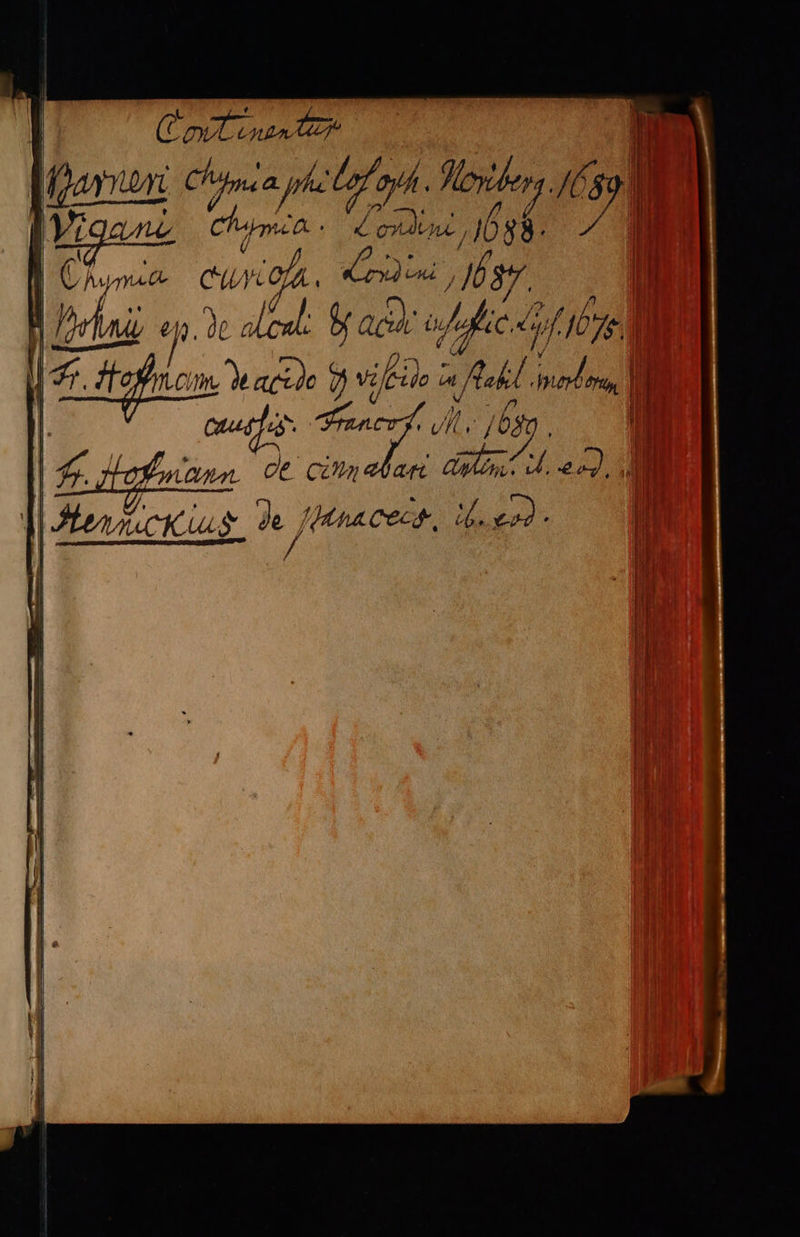 Continentur
Barneri Chymia philosoph. Noriberg. 1689
Vigani Chymia. Londini, 1688.
Chymia curiosa. Londini, 1687.
Bohnii ep. de alcali & acidi insuffic. Lips. 1675.
Fr. Hofmann. de acido & viscido in stabil. morborum
caussis. Francof. M. 1689.
Fr. Hofmann de cinnabari antim. ib. eod.
de Panaceis, ib. eod.